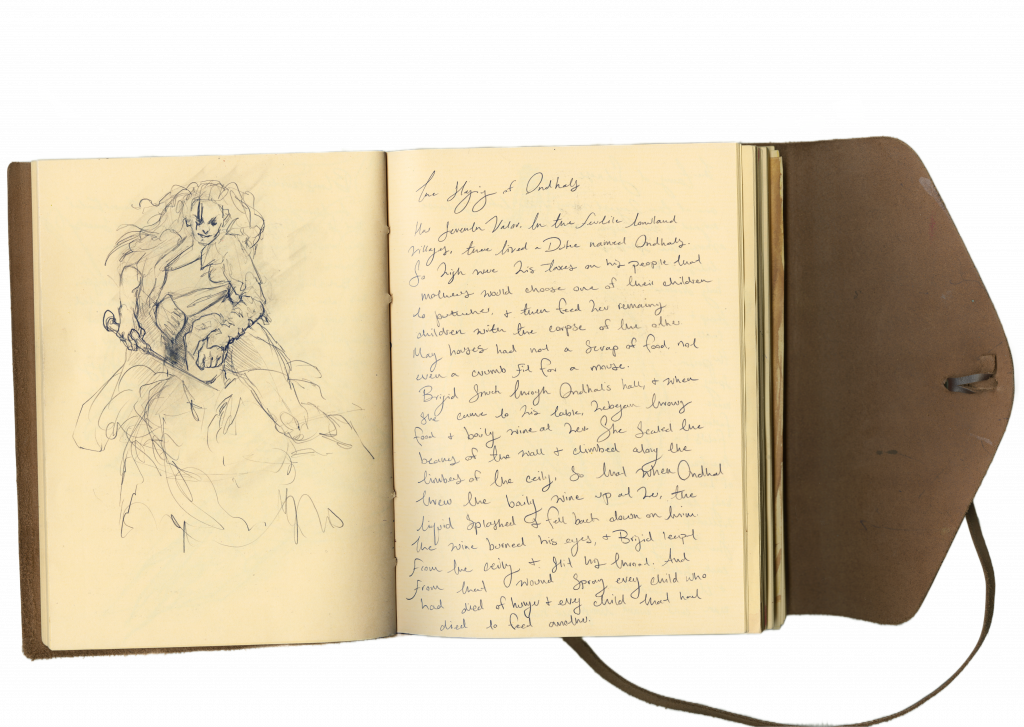 The Slaying of Ondhals
Her Seventh Valor. In the fertile lowland
villages, there lived a Duke named Ondhals.
So high were his taxes on his people that
mothers would choose one of their children
to butcher, & then feed her remaining
children with the corpse of the other
May houses had not a scrap of food, not
even a crumb fit for a mouse.
Brigid through Ondhals hall, & when
She came to his table, he began throwing
food & boiling wine at her She Scaled the
beams of the wall & climbed along the
timbers of the ceiling, So that when Ondhal
threw the boiling wine up at her, the
liquid Splashed & fell back down on him
The wine burned his eyes, & Brigid leapt
From the ceiling & Slit his throat. And
From that wound Spray every child who
had died of hunger & every child that had
died to feed another.